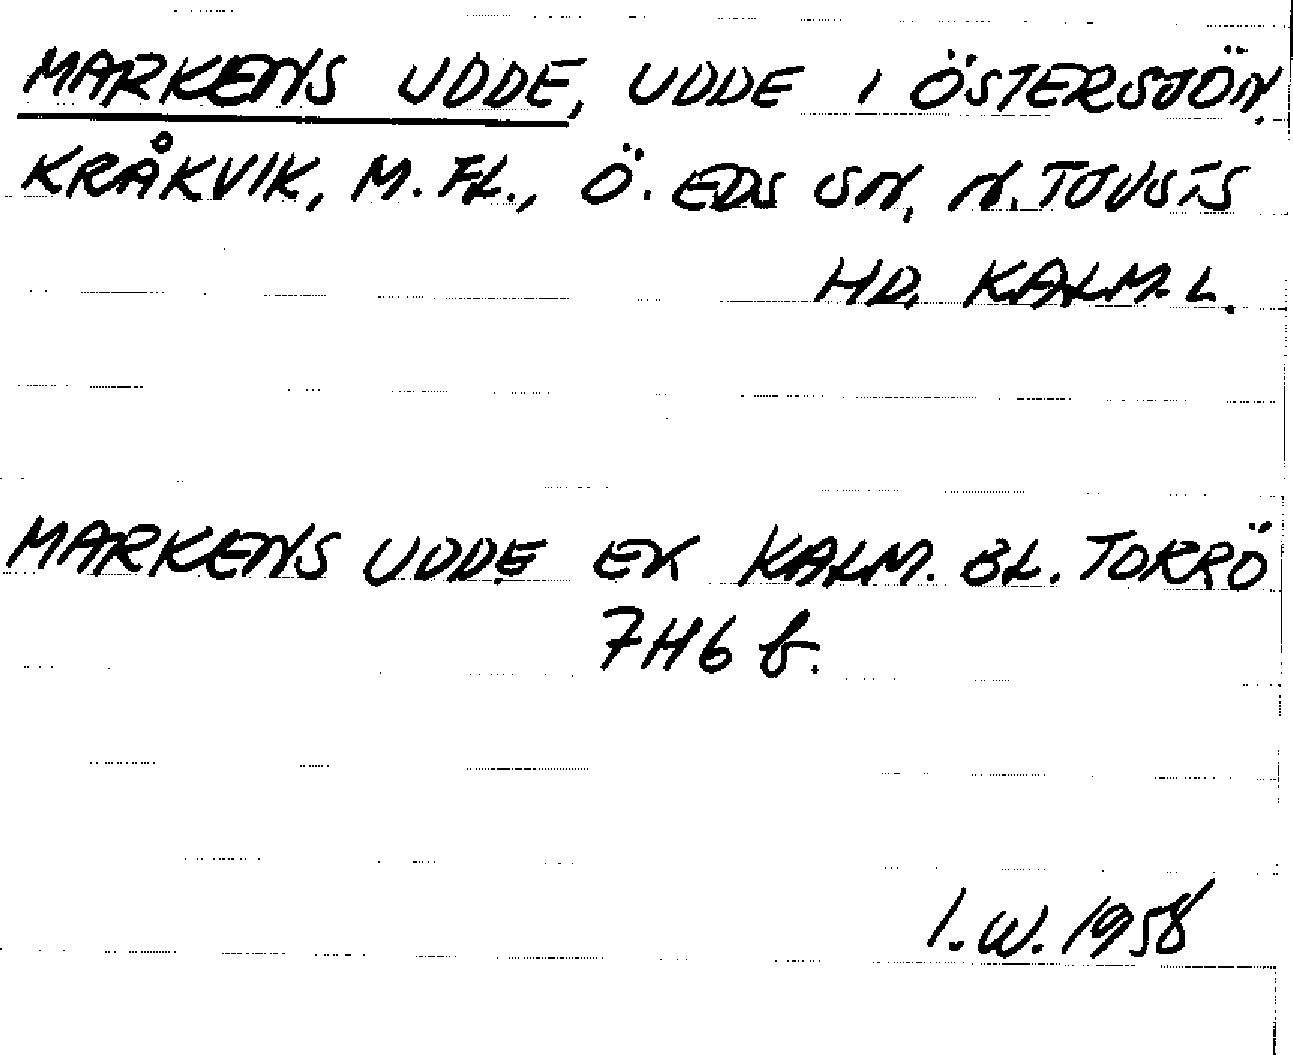 MARKENS UDDE, UDDE I ÖSTERSJÖN,
KRÅKVIK, M. FL., Ö. EDS SN, N. TJUSTS
HD, KALM. L.
MARKENS UDDE EK KALM. BL. TORRÖ
7H6 f.
I. W. 1958